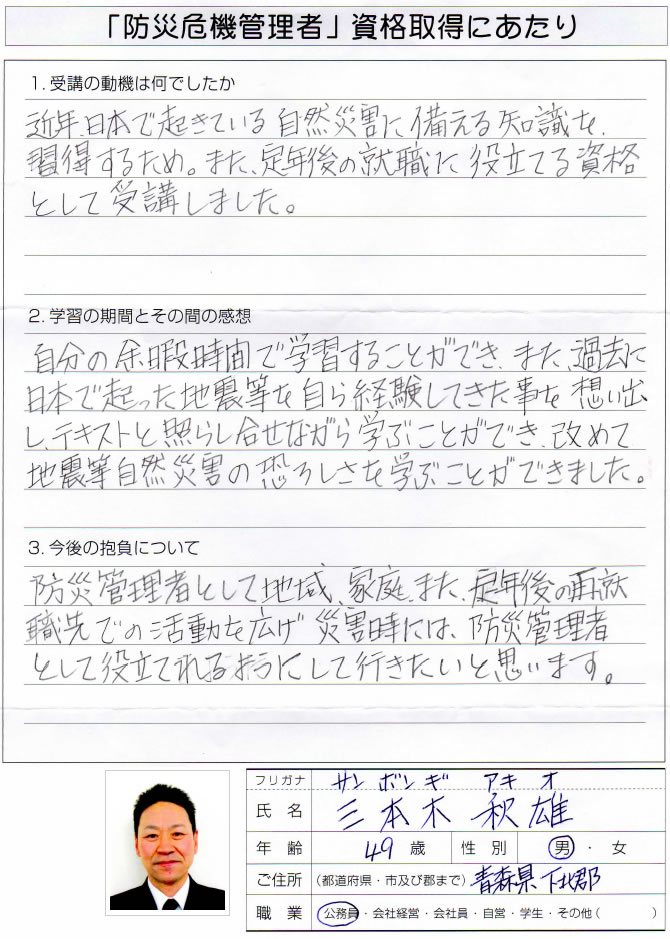 「防災危機管理者」資格取得にあたり
1. 受講の動機は何でしたか
近年、日本で起きている自然災害に備える知識を、
習得するため。また、定年後の就職に役立てる資格
として受講しました。
2. 学習の期間とその間の感想
自分の余暇時間で学習することができ、また、過去に
日本で起った地震等を自ら経験してきた事を想い出
し、テキストと照らし合せながら学ぶことができ、改めて
地震等自然災害の恐ろしさを学ぶことができました。
3. 今後の抱負について
防災管理者として地域、家庭、また、定年後の再就
職先での活動を広げ災害時には、防災管理者
として役立てれるようにして行きたいと思います。
フリガナ サンボンギ アキオ
氏名 三本木 秋雄
年齢 49歳 性別 男・女
ご住所 (都道府県・市及び郡まで) 青森県下北郡
職業 公務員・会社経営・会社員・自営・学生・その他( )